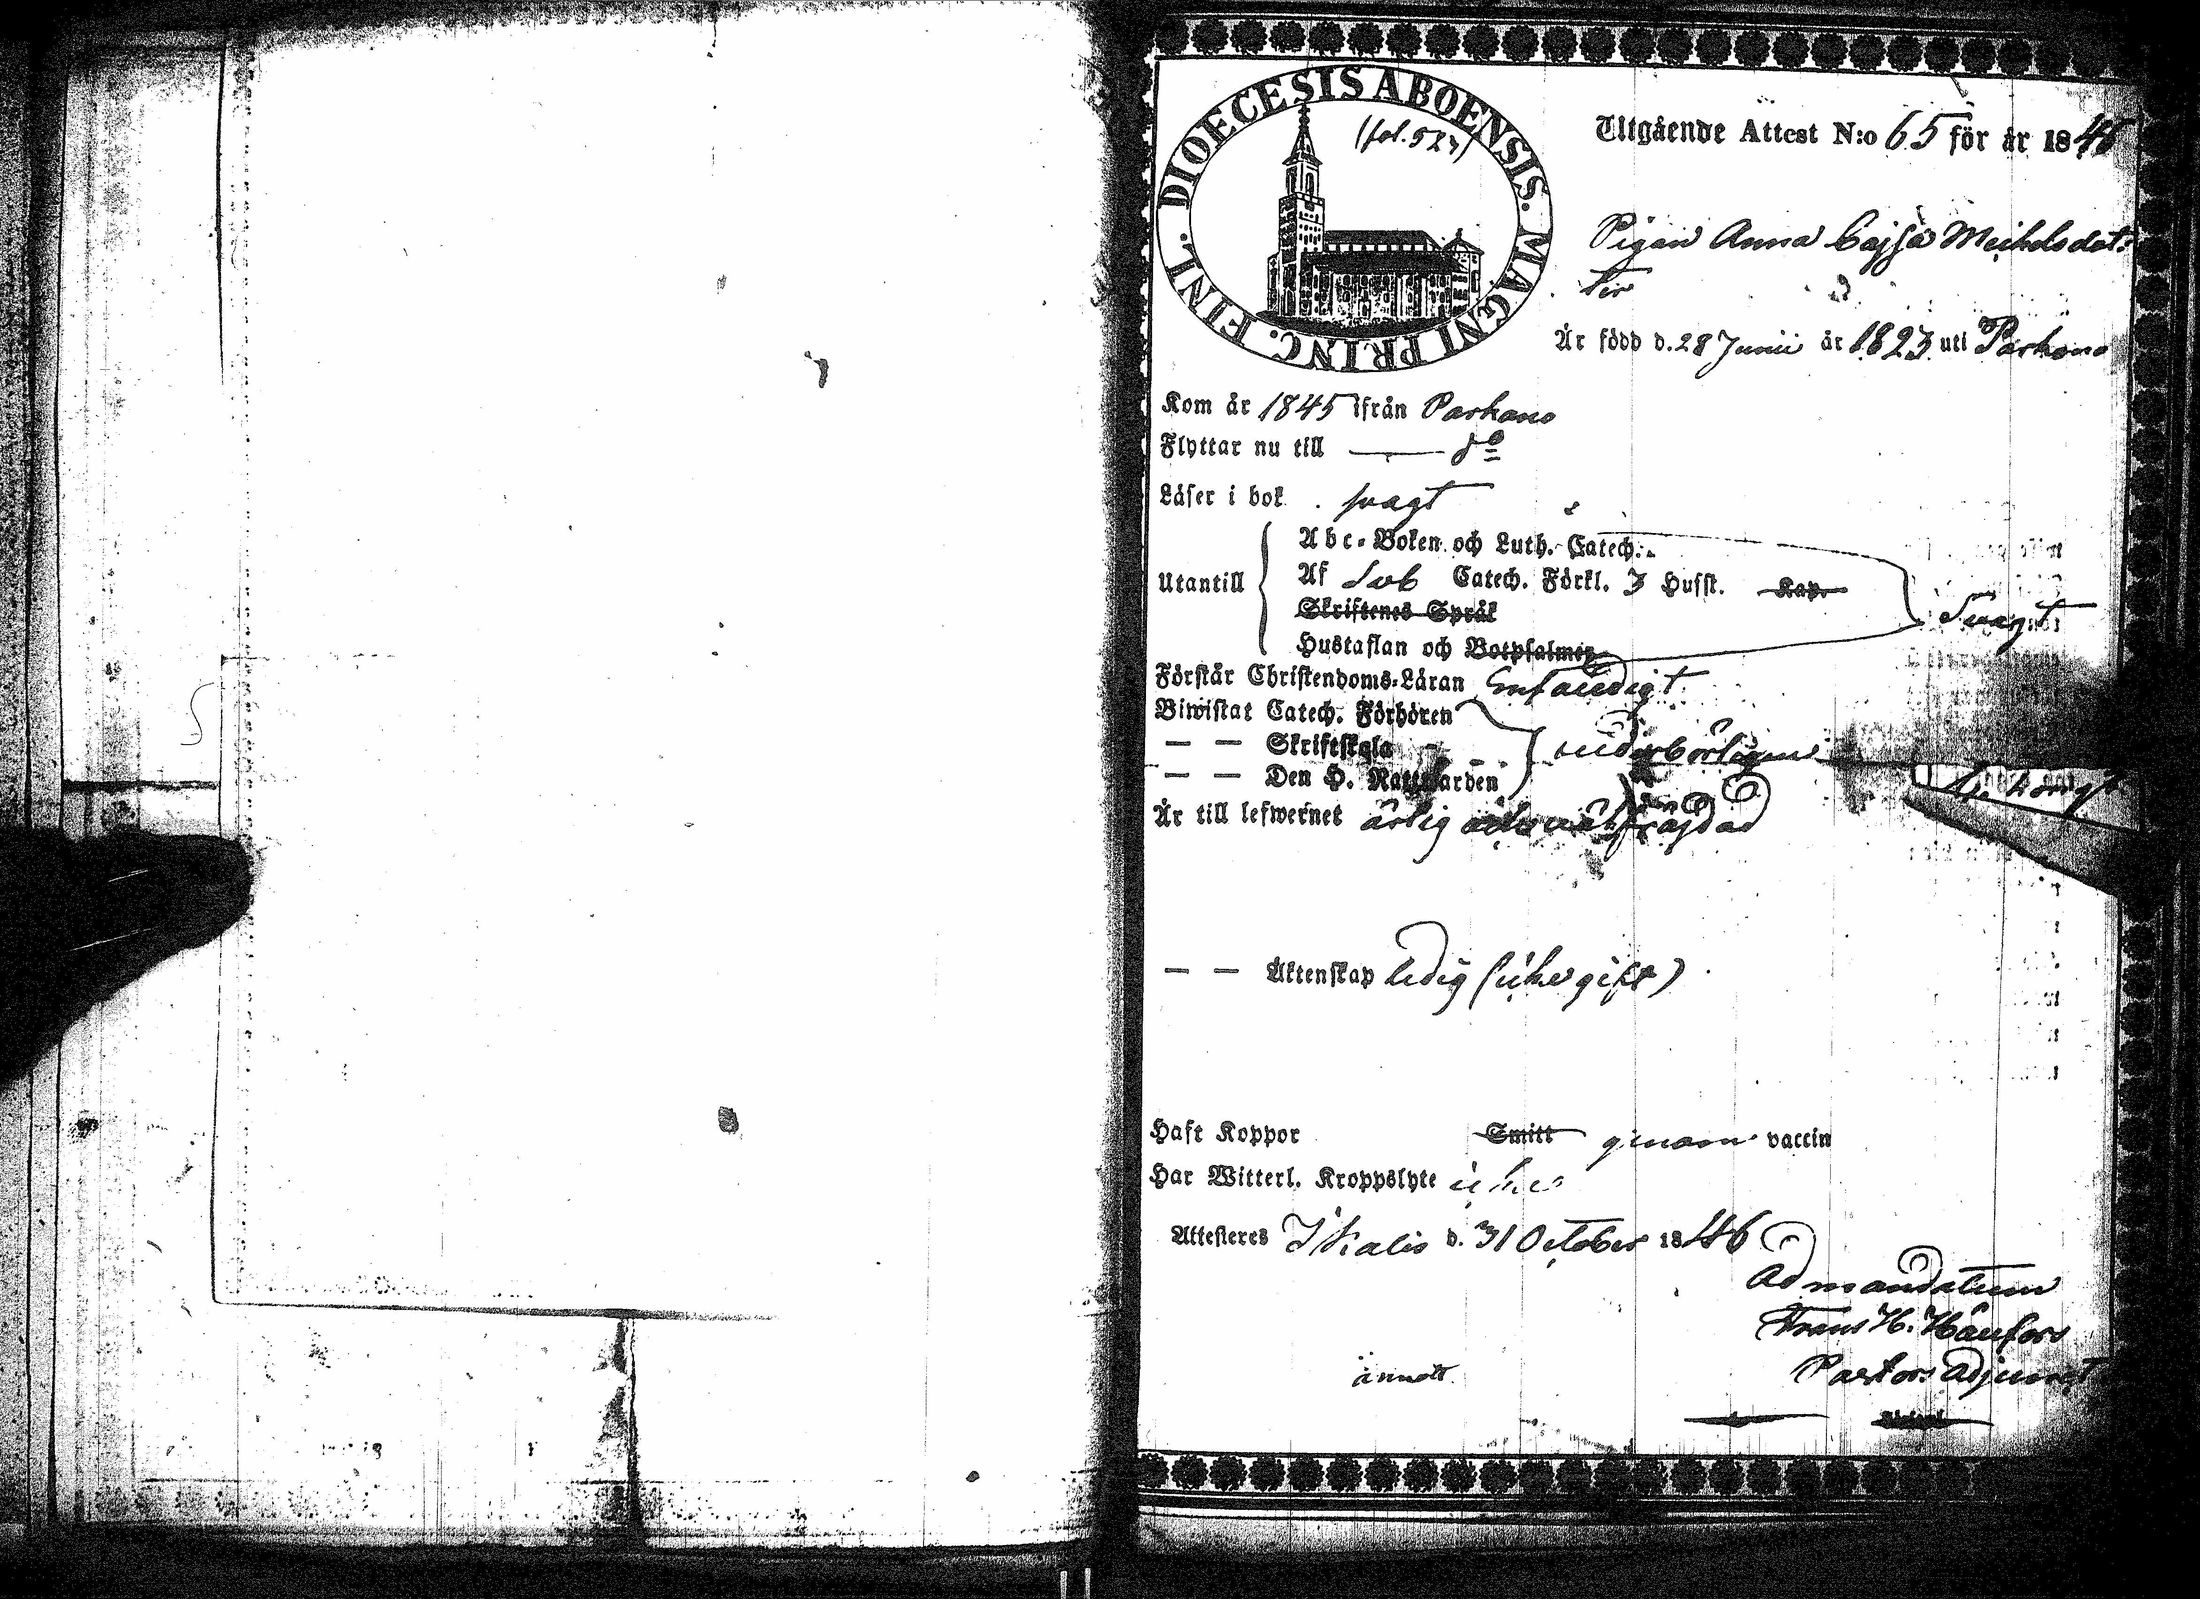 DIOECESIS ABOENSIS. MAGNI PRINC. FINL.
(fol. 523)
Utgående Attest N:o 65 för år 1846
Pigan Anna Cajsa Michelsdot:
ter
Är född d. 28 Junii år 1823 uti Parkano
Kom år 1845 ifrån Parkano
Flyttar nu till — do
Läser i bok svagt
Abc-Boken och Luth. Catech.
Utantill Af Sveb Catech. Förkl. 3 Husst. Kap. Svagt
Skriftenes Språk
Hustaflan och Botpsalmer
Förstår Christendoms-Läran Enfaldigt
Biwistat Catech. Förhören
— — Skriftskola vederbörligen
— — Den H. Nattvarden
Är till lefwernet ärlig och välfräjdad
— — Äktenskap ledig (icke gift)
Haft Koppor Smitt genom vaccin
Har Witterl. Kroppslyte icke
Attesteres Ikalis d. 31 October 1846
Ad mandatum
Frans H.
Pastors Adjunct